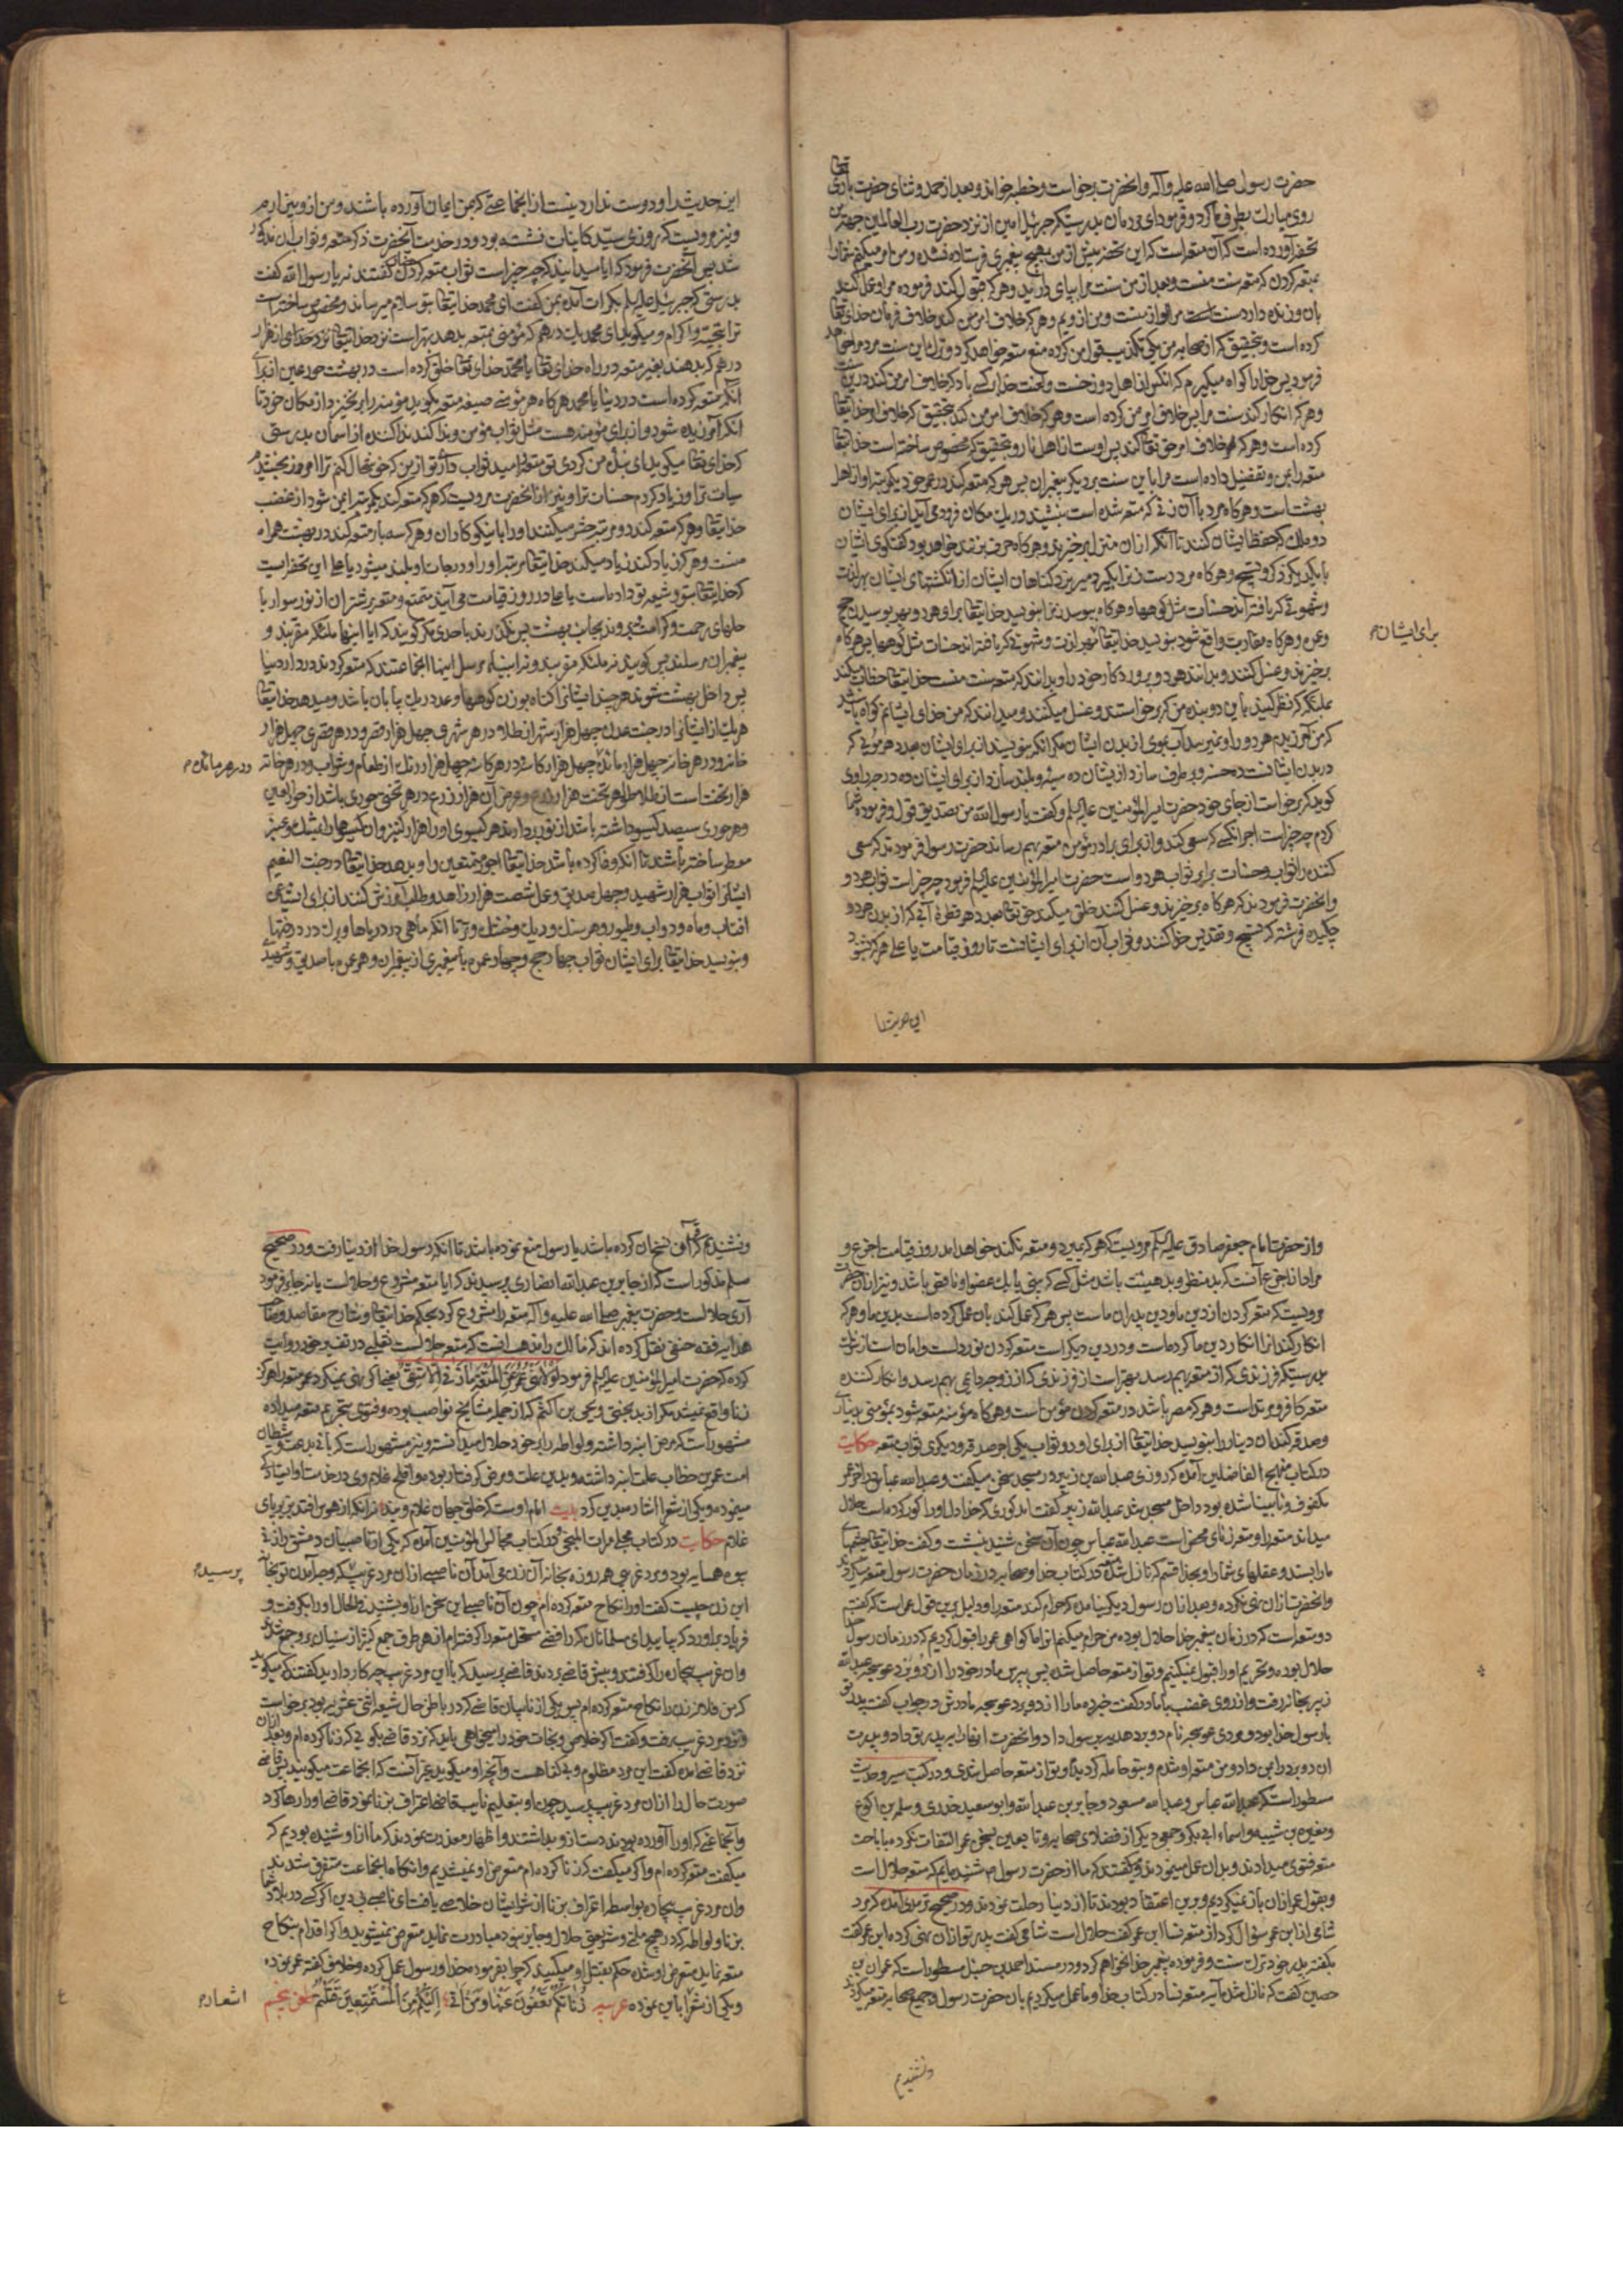 حضرت رسول صلی الله علیه وآله وانحضرت برخواست وخطبه خواند وبعد از حمد وثنای حضرت باری تعالی
روی مبارک بطرف ما کرد وفرمود ای مردمان بدرستیکه جبرئیل امین از نزد حضرت رب العالمین جهة من
تحفه آورده است که آن متعه است که این تحفه پیش از من بهیچ پیغمبری فرستاده نشده ومن امر میکنم شما را
بمتعه کردن که متعه سنت منست وبعد از من سنت مرا بپای دارید وهر که قبول کند فرموده مرا وعمل کند
بان وزنده دارد سنت مرا او از منست ومن از ویم وهر که خلاف امر من کند خلاف فرمان خدای تعالی
کرده است وبتحقیق که از صحابه من یکی تکذیب قول من کرده منع متعه خواهد کرد وترک این سنت مرد مرا خواهد
فرمود پس خدا را کواه میکیرم که انکس از اهل دوزخست ولعنت خدا بر کسی باد که خلاف امر من کند درین سنت
وهر که انکار کند سنت مرا پس خلاف امر من کرده است وهر که خلاف امر من کند بتحقیق که خلاف امر خدایتعالی
کرده است وهر که خلاف امر حق تعالی کند پس اوست از اهل نار وبتحقیق که مخصوص ساخته است خدایتعالی
متعه را بمن وتفضیل داده است مرا باین سنت بر دیکر پیغمبران پس هر که متعه کند در عمر خود یکمرتبه او از اهل
بهشت است وهرکاه مرد با آن زنی که متعه شده است بنشیند در یک مکان فرود می آید از برای ایشان
دو ملک که حفظ ایشان کنند تا آنکه از ان منزل برخیزند وهرکاه حرف بزنند خواهد بود کفتکوی ایشان
با یکدیکر ذکر وتسبیح وهرکاه مرد دست زنرا بکیرد میریزد کناهان ایشان از انکشتهای ایشان بهر لذت
وشهوتی که یافته اند حسنات مثل کوهها وهرکاه ببوسد زنرا بنویسد خدایتعالی برای هر دو بهر بوسیدن حج
وعمره وهرکاه مقاربت واقع شود بنویسد خدایتعالی بهر لذت وشهوتی که یافته اند حسنات مثل کوهها پس هرکاه
برای ایشان م
برخیزند وغسل کنند وبدانند هر دو پروردکار خود را وبدانند که متعه سنت منست خدایتعالی خطاب میکند
بملائکه که نظر کنید باین دو بنده من که برخواستند وغسل میکنند ومیدانند که من خدای ایشانم کواه باشید
که من آمرزیدم هر دو را ونمیرسد آب بموی از بدن ایشان مکر آنکه بنویسند از برای ایشان بعدد هر موئی که
در بدن ایشانست ده حسنه وبرطرف سازد از ایشان ده سیئه وبلند سازد از برای ایشان ده درجه راوی
کوید که برخواست از جای خود حضرت امیرالمؤمنین علیه السلم وکفت یا رسول الله من تصدیق قول وفرموده شما
کردم چه چیز است اجر انکسی که سعی کند واز برای برادر مؤمن متعه بهم رساند حضرت رسول فرمودند که سعی
کننده را ثواب وحسنات برابر ثواب هر دو است حضرت امیرالمؤمنین علیه السلم فرمود چه چیز است ثواب هر دو
وانحضرت فرمودند که هرکاه برخیزند وغسل کنند خلق میکند حق تعالی بعدد هر قطرۀ آبی که از بدن هر دو
چکیده فرشته که تسبیح وتقدیس خدا کنند وثواب آن از برای ایشانست تا روز قیامت یا علی هر که بشنود
این حدیث را
این حدیث را ودوست ندارد نیست از انجماعتی که بمن ایمان آورده باشند ومن از و بیزارم
ونیز مرویست که روزی سیّد کاینات نشسته بود ودر خدمت آنحضرت ذکر متعه وثواب آن مذکور
شد پس آنحضرت فرمود که ایا میدانید که چه چیز است ثواب متعه کردن کفتند نه یا رسول الله کفت
بدرستی که جبرئیل علیه السلم بکرات آمده بمن کفت ای محمد خدایتعالی بتو سلام میرساند ومخصوص ساخته است
ترا بتحیة واکرام ومیکوید ای محمد یک درهم که مؤمنی بمتعه بدهد بهتر است نزد خدایتعالی از هزار
درهم که بدهند بغیر متعه در راه خدای تعالی یا محمد خدای تعالی خلق کرده است در بهشت حورعین از برای
آنکه متعه کرده است در دنیا یا محمد هرکاه هر مؤمنی صیغه متعه بکوید بمؤمنه برابر نخیزد از مکان خود تا
انکه آمرزیده شود واز برای مؤمنه هست مثل ثواب مؤمن وندا کند ندا کننده از اسمان بدرستی
که خدای تعالی میکوید ای بندۀ من کردی تو متعه را بامید ثواب
سیات ترا وزیاد کردم حسنات ترا ونیز از انحضرت مرویست که هر که متعه کند یکمرتبه ایمن شود از غضب
خدایتعالی وهر که متعه کند دو مرتبه حشر میکنند او را با نیکوکاران وهر که سه بار متعه کند در بهشت همراه
منست وهر که زیاد کند زیاد میکند خدایتعالی مرتبه او را ودرجات او بلند میشود یا علی این تحفه ایست
که خدایتعالی بتو وشیعه تو داده است یا علی در روز قیامت می آیند متمتع ومتعه بر شتران از نور سوار با
حلهای رحمت وکرامت
پیغمبران مرسلند پس کویند نه ملائکه مقربند ونه انبیاء مرسل اینها انجماعتند که متعه کردند در دار دنیا
پس داخل بهشت شوند هرچند ایشانرا کناه بوزن کوهها وعدد ریک بیابان باشد ومیدهد خدایتعالی
هر یک از ایشانرا در جنت عدن چهل هزار شهر از طلا در هر شهری چهل هزار قصر ودر هر قصری چهل هزار
خانه ودر هر خانه چهل هزار مائده چهل هزار کاسه در هر کاسه چهل هزار رنک از طعام وشراب ودر هر خانه
ودر هر مائده م
هزار تخت است از طلا طول هر تخت هزار ذرع وعرض آن هزار ذرع در هر تختی حوری باشد از حورالعین
وهر حوری سیصد کیسو داشته باشد از نور بردارند هر کیسوی او را هزار کنیز وان کیسوها را بمشک وعنبر
معطر ساخته باشند تا انکه وفا کرده باشد خدایتعالی اجر متمتعین را وبدهد خدایتعالی در جنت النعیم
ایشانرا ثواب هزار شهید وچهل صدیق وعمل شصت هزار زاهد وطلب آمرزش کنند از برای ایشان
افتاب وماه ودواب وطیور وهر سنک وریک وخشک وتر تا انکه ماهی در دریاها وبرک در درختها
وبنویسد خدایتعالی برای ایشان ثواب چهار حج وچهار عمره با پیغمبری از پیغمبران وهر عمره با صدیق وشهیدی
واز حضرت امام جعفر صادق علیه السلم مرویست که هر که بمیرد ومتعه نکند خواهد آمد روز قیامت اجزع و
مراد از اجزع آنست که بد منظر وبد هیئت باشد مثل کسی که بینی یا یک عضو او ناقص باشد ونیز از ان حضرت
مرویست که متعه کردن از دین ما ودین پدران ماست پس هر که عمل کند بان عمل کرده است بدین ما وهر که
انکار کند انرا انکار دین ما کرده است ودر دین دیکر است متعه کردن
بدرستیکه فرزندی که از متعه بهم رسد بهتر است از فرزندی که از زوجه دائمی بهم رسد وانکار کننده
متعه کافر ومرتد است وهر که مصر باشد در متعه کردن مؤمن است وهرکاه مؤمنه متعه شود بمؤمنی بدیناری
وصدقه کند ان دینار را بنویسد خدایتعالی از برای او دو ثواب یکی اجر صدقه ودیکری ثواب متعه حکایت
در کتاب منهج الفاضلین آمده که روزی عبدالله بن زبیر در مسجد سخن میکفت وعبدالله عباس در آخر عمر
مکفوف ونابینا شده بود داخل مسجد شد عبدالله زبیر کفت آمد کوری که خدا دل او را کور کرده است حلال
میداند متعه را ومتعه زنای محض است عبدالله عباس چون آن سخن شنید بنشست وکفت خدایتعالی چشمهای
ما را بستد وعقلهای شما را وبخدا قسم که نازل شد متعه در کتاب خدا وصحابه در زمان حضرت رسول متعه میکردند
وانحضرت از ان نهی نکرده وبعد از ان رسول دیکر نیامد که حرام کند متعه را ودلیل برین قول عمر است که کفت
دو متعه است که در زمان پیغمبر خدا حلال بوده من حرام میکنم انرا ما کواهی عمر را قبول کردیم که در زمان رسول خدا
حلال بوده وتحریم او را قبول نمیکنیم وتو از متعه حاصل شدۀ پس بپرس مادر خود را از دو برد عوسجه عبدالله
زبیر بخانه رفت واز روی غضب با مادر کفت خبر ده ما را از دو برد عوسجه مادرش در جواب کفت پدر تو
با رسول خدا بود ومردی عوسجه نام دو برد هدیه برسول داد وانحضرت انها را به پدر تو داد وپدرت
ان دو برد را بمن داد ومن متعه او شدم وبتو حامله کردیدم وتو از متعه حاصل شدی ودر کتب سیر وحدیث
مسطور است که عبدالله عباس وعبدالله مسعود وجابر بن عبدالله وابو سعید خدری وسلمة بن اکوع
ومغیرة بن شیبه واسماء ابی بکر وجمعی دیکر از فضلای صحابه وتابعین بسخن عمر التفات نکرده باباحت
متعه فتوی میدادند وبدان عمل مینمودند ومیکفتند که ما از حضرت رسول ص شنیده ایم که متعه حلال است
وبقول عمر از ان باز نمیکردیم وبرین اعتقاد بودند تا از دنیا رحلت نمودند ودر صحیح ترمذی آمده که مرد
شامی از ابن عمر سؤال کرد از متعه نسا ابن عمر کفت حلال است شامی کفت پدر تو از ان نهی کرده ابن عمر کفت
بکفته پدر خود ترک سنت وفرموده پیغمبر خدا نخواهم کرد ودر مسند احمد بن حنبل مسطور است که عمران بن
حصین کفت که نازل شد آیه متعه نسا در کتاب خدا وما عمل میکردیم بان حضرت رسول وجمیع صحابه متعه میکردند
ونشنیدیم
ونشنیدیم که قرآن نسخ ان کرده باشد یا رسول منع نموده باشد تا انکه رسول خدا از دنیا رفت ودر صحیح
مسلم مذکور است که از جابر بن عبدالله انصاری پرسیدند که ایا متعه مشروع وحلالست یا نه جابر فرمود
آری حلالست وحضرت پیغمبر صلی الله علیه وآله متعه را مشروع کرد بحکم خدایتعالی وشارح مقاصد وصاحب
هدایه فقه حنفی نقل کرده اند که مالک را مذهب انست که متعه حلالست ثعلبی در تفسیر خود روایت
کرده که حضرت امیرالمؤمنین علیه السلم فرمود لولا نهی عمر عن المتعة ما زنی الا شقی یعنی اکر نهی نمیکرد عمر متعه را هرکز
زنا واقع نمیشد مکر از بدبختی ویحیی بن اکثم که از جمله مشایخ نواصب بوده وفتوی بتحریم متعه میداده
مشهور است که مرض ابنه داشته ولواطه را بر خود حلال میدانسته ونیز مشهور است که بانی بدعت وشیطان
امت عمر بن خطاب علت ابنه داشته وبدین علت ومرض کرفتار بوده وافلح غلام وی در خدمت او ایستادکی
مینموده ویکی از شعرا اشاره بدین کرده بیت امام اوست که خلق جهان غلام ویند نه آنکه از هوس افتد بزیر پای
غلام حکایت در کتاب مجلی مرات المنجی ودر کتاب مجالس المؤمنین آمده که یکی از ناصبیان دمشق را زنی
بوه همسایه بود ومرد غریبی هر روزه بخانه آن زن می آمد آن ناصبی از ان مرد غریب که وجه آمدن تو بخانه
پرسید م
این زن چیست کفت او را نکاح متعه کرده ام چون آن ناصبی این سخن از او شنید فی الحال او را بکرفت و
فریاد براورد که بیایید ای مسلمانان که رافضی مستحل متعه را کرفته ام از هر طرف جمع کثیر از سنیان بروجمع شدند
وان غریب بیچاره را کرفتند وپیش قاضی بردند قاضی پرسید که با این مرد غریب چه کار دارید کفتند که میکوید
که من فلانه زن را نکاح متعه کرده ام پس یکی از نایبان قاضی که در باطن حال شیعه اثنی عشری بود برخواست
ونزد مرد غریب رفت وکفت اکر خلاصی ونجات خود را میخواهی باید که نزد قاضی بکویی که زنا کرده ام وبعد از ان
نزد قاضی آمد کفت این مرد مظلوم وبی کناه است وآنچه او میکوید غیر آنست که انجماعت میکویند پس قاضی
صورت حال را از ان مرد غریب پرسید چون او بتعلیم نایب قاضی اعتراف بزنا نمود قاضی او را رها کرد
وآنجماعتی که او را آورده بودند دست از و بداشتند واظهار معذرت نمودند که ما از او شنیده بودیم که
میکفت متعه کرده ام واکر میکفت که زنا کرده ام متعرض او نمیشدیم وانکاه انجماعت متفرق شدند
وان مرد غریب بیچاره بواسطه اعتراف بزنا از شر ایشان خلاصی یافت ای ناصبی بی دین اکر کسی در بلاد شما
بزنا ولواطه که در هیچ ملتی وشرعی حلال وجایز نبوده مبادرت نماید متعرض نمیشوید واکر اقدام بنکاح
متعه نماید متعرض او شده حکم بقتل او میکنید که چرا بفرموده خدا ورسول عمل کرده وخلاف کفته عمر نموده
ویکی از شعرا باین نموده عربیه
اشعار م
طعن پنجم